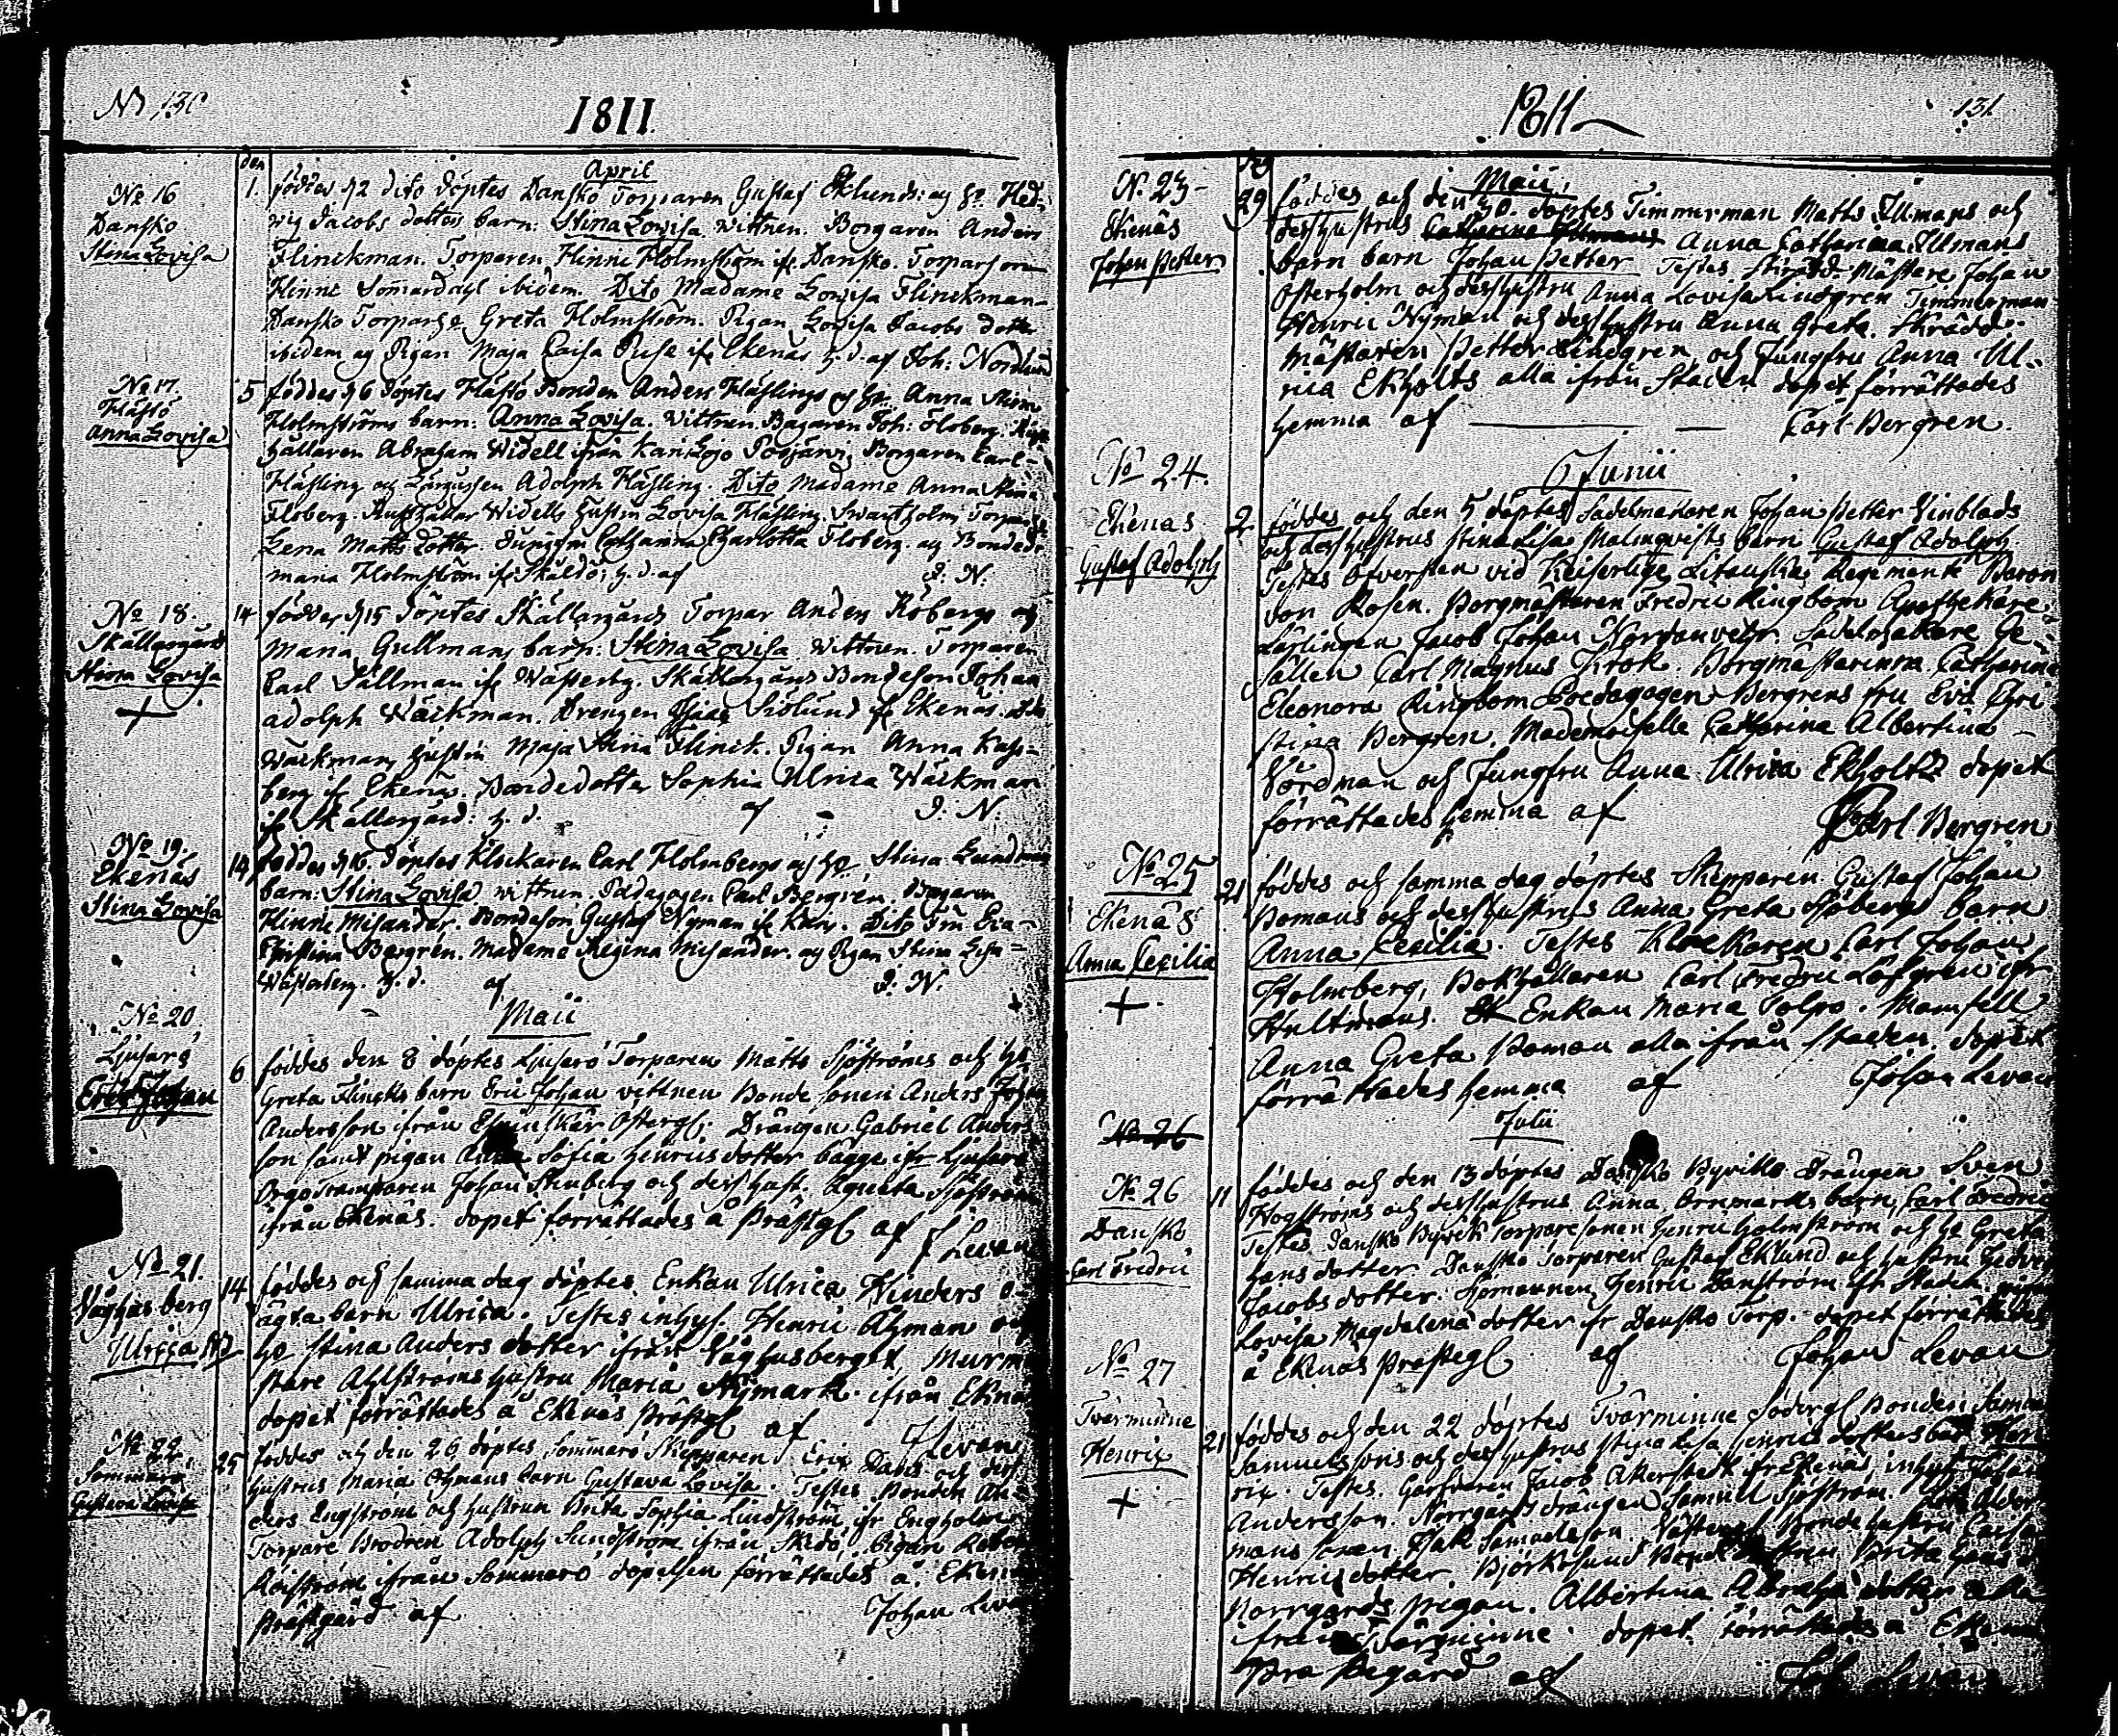 No 130
1811.
den
April
No 16
Dansko
Stina Lovisa
1. föddes d 2 dito döptes Dansko Torparen Gustaf Eklunds og Ho Hed-
wig Jacobs dotters barn: Stina Lovisa. Wittnen. Borgaren Anders
Flinckman. Torparen Hinric Holmström ifr Dansko. Torpars son
Hinric Sommardahl ibidem. Dito Madame Lovisa Flinckman
Dansko Torpars Greta Holmström. Pigan Lovisa Jacobs dotter
ibidem og Pigan Maja Caisa ifr Ekenäs h. d. af Joh: Norrlund
No 17.
Hästö
Anna Lovisa
5 föddes d 6 döptes Hästö Bonden Anders Häslings og Anna Stina
Holmströms barn: Anna Lovisa. Wittnen. Bagaren Joh: Floberg.
hållaren Abraham Widell ifrån Karislojo Borgaren Carl
Häsling og Adolph Häsling. Dito Madame Anna Stina
Floberg. Rusthållar Widells hustru Lovisa Häsling. Swartholm
Lena Matts dotter. Jungfru Catharina Charlotta Floberg. og Bonded.
Maria Holmström ifr Skåldö, h. d. af J. N.
No 18.
Skällargård
Stina Lovisa
+
14 föddes d 15 döptes Skällargård Torpar Anders Röbergs og
Maria Gullmans barn: Stina Lovisa Wittnen. Torparen
Carl Sällman ifr Wästerby. Skällargård Bondeson Johan
Adolph Wäckman. Drengen Isaac Siölund ifr Ekenäs. Dito
Wäckmans hustru Maja Stina Flinck. Pigan Anna
berg ifr Ekenä. Bondedotter Sophia Ulrica Wäckman
ifr Skällargård. h. d. af J. N.
No 19.
Ekenäs
Stina Lovisa
14 föddes d 16 döptes Klockaren Carl Holmbergs og Ho Stina
barn: Stina Lovisa Wittnen. Pædagogen Carl Bergren. Borgaren
Hinric Misander. Bondeson Gustaf Nyman ifr Karis. Dito Fru Eva
Christina Bergren. Madame Regina Misander. og Pigan Stina Lisa
h. d. af J. N.
Maii
No 20
Ljusarö
Eric Johan
6 föddes den 8 döptes Ljusarö Torparen Matts Sjöströms och ho
Greta Flincks barn Eric Johan wittnen Bonde sonen Anders Johan
Andersson ifrån Drängen Gabriel Anders
son samt pigan Anna Sofia Henrics dotter bägge ifr Ljusarö
Orgotramparen Johan Stenberg och dess hust. Agneta Sjöström
ifrån Ekenäs. dopet förrättades å Prästg af J Levan
No 21.
Våghusberg
Ulrica
14 föddes och samma dag döptes Enkan Ulrica Hinders o-
ägta barn Ulrica. Testes inhys. Henric Öhman och
ho Stina Anders dotter ifrån Våghusberget, Murm
stare Ahlströms hustru Maria Nymark ifrån Ekenäs
dopet förrättades å Ekenäs prästg af J Levan
No 22.
Sommarö
Gustava Lovisa
25 föddes och den 26 döptes Sommarö Skepparen Eric Dahls och dess
hustrus Maria Öhmans barn Gustava Lovisa. Testes Bonden An-
ders Engström och hustrun Brita Sophia Lindström ifr Engholm
Torpare Brodren Adolph Sundström ifrån Skedö, Pigan
ifrån Sommarö dopelsen förrättades å Ekenäs
Prästgård af Johan Levan
1811
131.
Maii
N. 23
Ekenäs
Johan Petter
29 föddes och den 30. döptes Timmerman Matts Illmans och
dess hustrus Anna Catharina Illmans
barn barn Johan Petter Testes Skrädd. Mästare Johan
Österholm och dess hustru Anna Lovisa Lindgren Timmerman
Henric Nyman och dess hustru Anna Greta. Skrädd-
mästaren Petter Lindgren, och Jungfru Anna Ul-
rica Ekholts alla ifrån Staden dopet förrättades
hemma af Carl Bergren.
Junii
No 24.
Ekenäs
Gustaf Adolph
2 föddes och den 5 döptes Sadelmakaren Johan Petter Linblads
och dess hustrus Stina Lisa Malmqvists barn Gustaf Adolph.
Testes Öfversten vid Keiserlige Litauske Regemente Baron
von Rosen. Borgmästaren Fredric Ringbom Apothekare
Lärlingen Jacob Johan Sadelmakare Ge-
sällen Carl Magnus Krok. Borgmästarinna Catharina
Eleonora Ringbom Pedagogen Bergrens fru Eva Chri-
stina Bergren. Mademoiselle Catharina Albertina
Nordman och Jungfru Anna Ulrica Ekholts dopet
förrättades hemma af Carl Bergren
No 25
Ekenäs
Anna Cecilia
+
21 föddes och samma dag döptes Skepparen Gustaf Johan
Bomans och dess hustrus Anna Greta Sjöbergs barn
Anna Cecilia. Testes Klockaren Carl Johan
Holmberg, Bokhållaren Carl Fredric Löfgren ifr
Hultmans. Enkan Maria Polso. Mamsell
Anna Greta Boman alla ifrån staden. dopet
förrättades hemma af Johan Levan
Julii
No 26
No 26
Dansko
Carl Fredric
11 föddes och den 13 döptes Dansko Byviks Drängen Sven
Högströms och dess hustrus Anna Örnmarks barn, Carl Fredric
Testes Dansko Byviks Torparesonen Henric Holmström och ho Greta
Hans dotter. Dansko Torparen Gustaf Eklund och hustru Hedvig
Jacobs dotter. Sjömannen Henric Danström ifr Staden, pigan
Lovisa Magdalena dotter ifr Dansko Torp. dopet förrättades
å Ekenäs prästeg af Johan Levan
No 27
Tvärminne
Henric
+
21 föddes och den 22 döptes Tvärminne Söderg Bonden Samuel
Samuelssons och dess hustrus Stina Lisa Henrics dotters barn Hen
ric. Testes. Garfvaren Jacob Åkerstedt ifr Ekenäs inhys Johan
Andersson. Norrgards drängen Samuel Sjöström.
mans sonen Isak Samuelsson. Bonde hustru Caisa
Henricsdotter. Björksund Brita Hans
Norrgards pigan. Albertina Abrahams dotter alla
ifrån Tvärminne. dopet förrättades å Ekenäs
Prästegård af Joh Levan